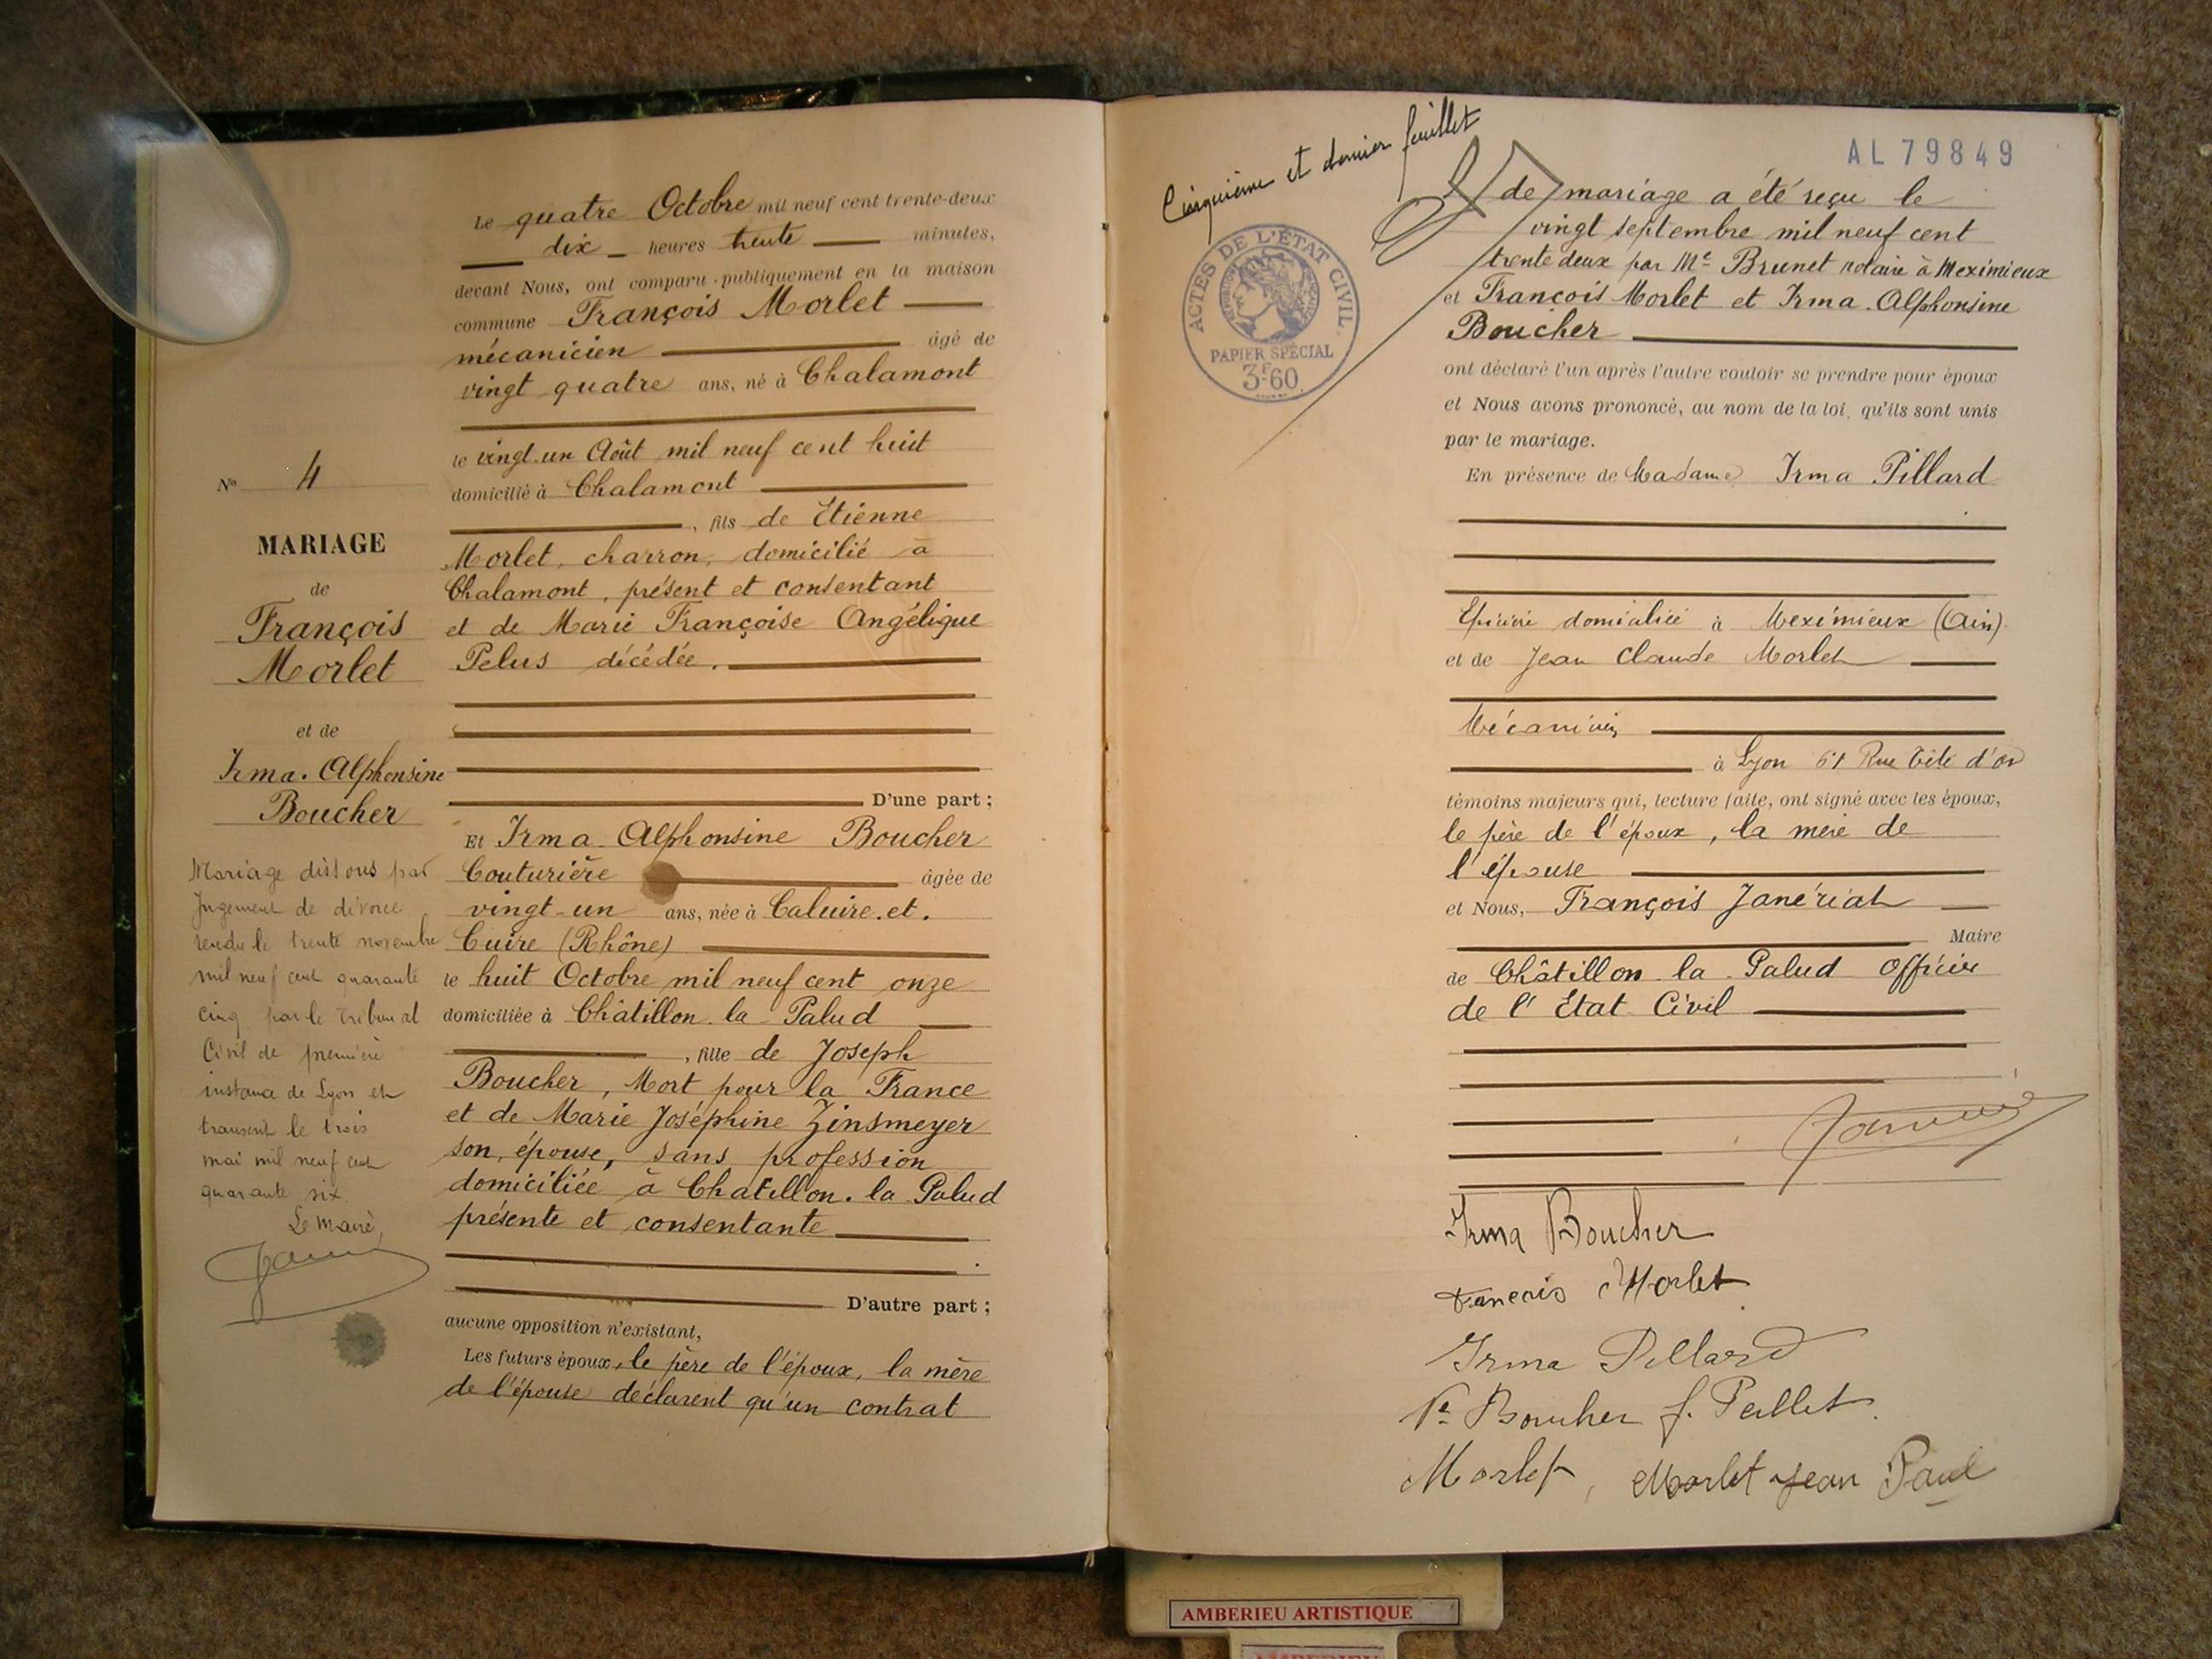 Le quatre Octobre mil neuf cent trente-deux
dix heures trente minutes,
devant Nous, ont comparu publiquement en la maison
commune François Morlet
mécanicien âgé de
vingt quatre ans, né à Chalamont
le vingt-un Août mil neuf cent huit
domicilié à Chalamont
, fils de Etienne
Morlet, charron, domicilié à
Chalamont, présent et consentant
et de Marie Françoise Angélique
Pelus décédée.
D'une part ;
Et Irma Alphonsine Boucher
Couturière âgée de
vingt-un ans, née à Caluire-et-
Cuire (Rhône)
le huit Octobre mil neuf cent onze
domiciliée à Châtillon-la-Palud
, fille de Joseph
Boucher, Mort pour la France
et de Marie Joséphine Zinsmeyer
son épouse, sans profession
domiciliée à Chatillon-la-Palud
présente et consentante
D'autre part ;
aucune opposition n'existant,
Les futurs époux, le père de l'époux, la mère
de l'épouse déclarent qu'un contrat
No 4
MARIAGE
de
François
Morlet
et de
Irma-Alphonsine
Boucher
Mariage dissous par
Jugement de divorce
rendu le trente novembre
mil neuf cent quarante
cinq par le tribunal
Civil de première
instance de Lyon et
transcrit le trois
mai mil neuf cent
quarante six.
Le Maire,
Cinquième et dernier feuillet
AL 79849
ACTES DE L'ÉTAT CIVIL.
PAPIER SPÉCIAL
3F60
de mariage a été reçu le
vingt septembre mil neuf cent
trente deux par Me Brunet notaire à Meximieux
et François Morlet et Irma-Alphonsine
Boucher
ont déclaré l'un après l'autre vouloir se prendre pour époux
et Nous avons prononcé, au nom de la loi, qu'ils sont unis
par le mariage.
En présence de Madame Irma Pillard
Epicière domiciliée à Meximieux (Ain)
et de Jean Claude Morlet
Mécanicien
à Lyon 61 Rue Tête d'or
témoins majeurs qui, lecture faite, ont signé avec les époux,
le père de l'époux, la mère de
l'épouse
et Nous, François Janériat
Maire
de Châtillon-la-Palud Officier
de l'Etat Civil
Irma Boucher
Francois Morlet
Irma Pillard
Ve Boucher J. Peillet
Morlet, Morlet Jean Paul
AMBERIEU ARTISTIQUE